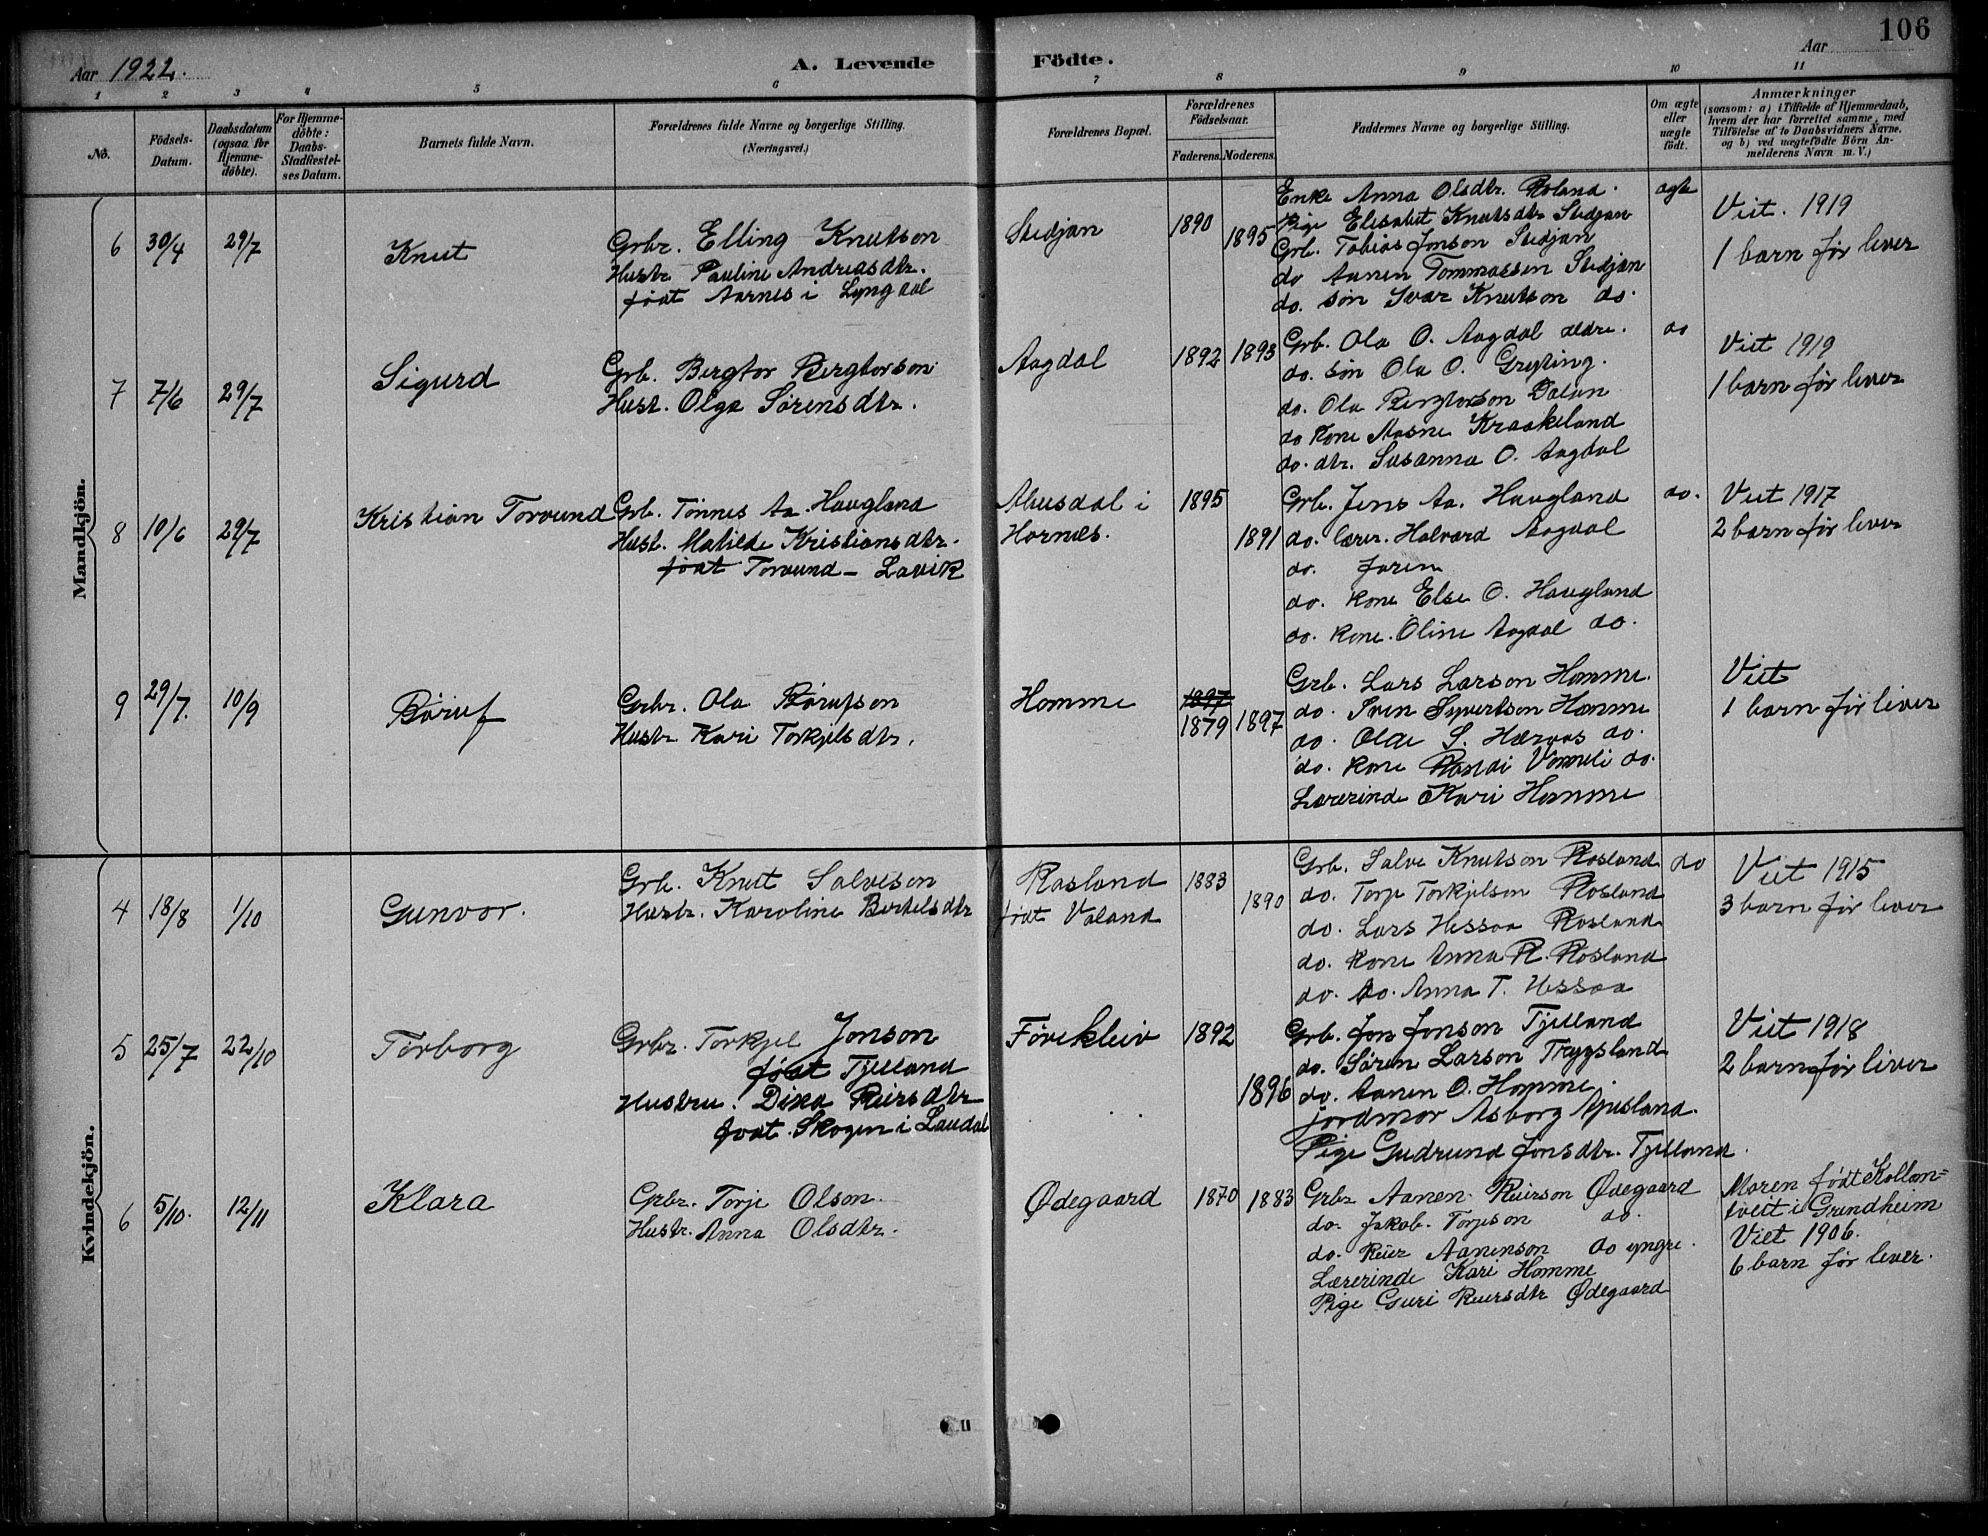 106
Aar 1922.
A. Levende Födte.
Aar
1 2 3 4 5 6 7 8 9 10 11
No.
Födsels-Datum.
Daabsdatum (ogsaa for Hjemme-döbte).
For Hjemme-döbte: Daabs-Stadfæstel-ses Datum.
Barnets fulde Navn.
Forældrenes fulde Navne og borgerlige Stilling.
(Næringsvei.)
Forældrenes Bopæl.
Forældrenes Födselsaar.
Faderens. Moderens.
Faddernes Navne og borgerlige Stilling.
Om ægte eller uægte födt.
Anmærkninger
(saasom: a) i Tilfælde af Hjemmedaab,
hvem der har forrettet samme, med
Tilföielse af to Daabsvidners Navne,
og b) ved uægtefödte Börn An-
melderens Navn m. V.)
Mandkjön.
6 30/4 29/7 Knut
Grbr. Elling Knutson
Hustr. Pauline Andreasdtr.
født Aarnes i Lyngdal
Stedjan
1890 1895
Enke Anna Olsdtr. Roland.
Pige Elisabet Knutsdtr Stedjan
Grb. Tobias Jonson Stedjan
do Aanen Tommassen Stedjan
do. søn Ivar Knutson do.
ægte
Viet. 1919
1 barn før lever
7 7/6 29/7 Sigurd
Grb. Bergtor Bergtorson
Hust. Olga Sørensdtr.
Aagdal
1892 1893
Grb. Ola O. Aagdal ældre.
do. søn Ola O. Greyting.
do. Ola Bergtorson Dalen
do kone Aasne Kraakeland
do. dtr. Susanna O. Aagdal
do
Viet 1919
1 barn før lever
8 10/6 29/7 Kristian Torvund
Grb. Tønnes Aa. Haugland
Hust. Matilde Kristiansdtr.
født Torvund - Lavik
i
Hornes.
1895 1891
Grb. Jens Aa. Haugland
do. lærer. Halvard Aagdal
do. faren
do. kone Else O. Haugland
do. kone. Oline Aagdal do.
do.
Viet 1917
2 barn før lever
9 29/7. 10/9 Børuf
Grbr. Ola Børufson
Hustr Kari Torkjelsdtr.
Homme
1897
1879 1897
Grb. Lars Larson Homme.
do. Sven Syvertson Homme
do. S. do.
do. kone do.
Lærerinde Kari Homme
Viet
1 barn før lever
Kvindekjön.
4 18/8 1/10 Gunvor.
Grb. Knut Salveson
Hustr. Karoline Bertelsdtr
Rosland
født Valand
1883 1890
Grb. Salve Knutson Rosland
do. Torje Torkjelson Rosland
do. Lars Hessaa Rosland
do. kone Anna R. Rosland
do. do. Anna T. Hessaa
do
Viet 1915
3 barn før lever
5 25/7 22/10 Torborg
Grbr. Torkjel Jonson
født Tjelland
Hustru. Dina Reiersdtr
født. Skogen i Laudal
Førekleiv
1892 1896
Grb. Jon Jonson Tjelland
do. Søren Larson Trygsland
do. Aanen O. Homme.
jordmor Asborg
Pige Gudrund Jonsdtr. Tjelland.
Viet 1918
2 barn før lever
6 5/10. 12/11 Klara
Grbr. Torje Olson.
Hustr. Anna Olsdtr.
Ødegaard
1870 1883
Grbr Aanen Reierson Ødegaard
do. Jakob. Torjeson do.
do. Reier Aanenson do yngre.
Lærerinde Kari Homme
Pige Guri Reiersdtr Ødegaard
Moren født Kollan=
tveit i Grindheim
Viet 1906.
6 barn før lever.